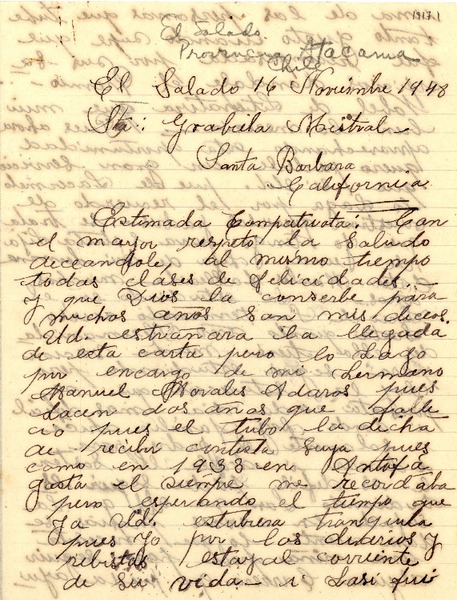 1917 1
El Salado.
Provincia Atacama
Chile
El Salado 16 Noviembre 1948
Sta: Grabiela Mistral
Santa Barbara
California
Estimada Compatriota: Con
el mayor respeto la saludo
deceandole, al mismo tiempo
todas clases de felicidades.-
y que Dios la conserbe para
muchos años son mis deceos.
Ud. estrañara la llegada
de esta carta pero lo hago
por encargo de mi hermano
Manuel Morales Adaros pues
hacen dos años que falle
cio pues el tubo la dicha
de recibir contesta suya pues
como en 1938 en Antofa
gasta el siempre me recordaba
pero esperando el tiempo que
ya Ud. estubiera tranquila
pues yo por los diarios y
rebistas estoy al corriente
de su vida - i hasi fui